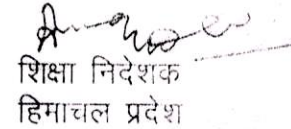 शिक्षा निदेशक
हिमाचल प्रदेश